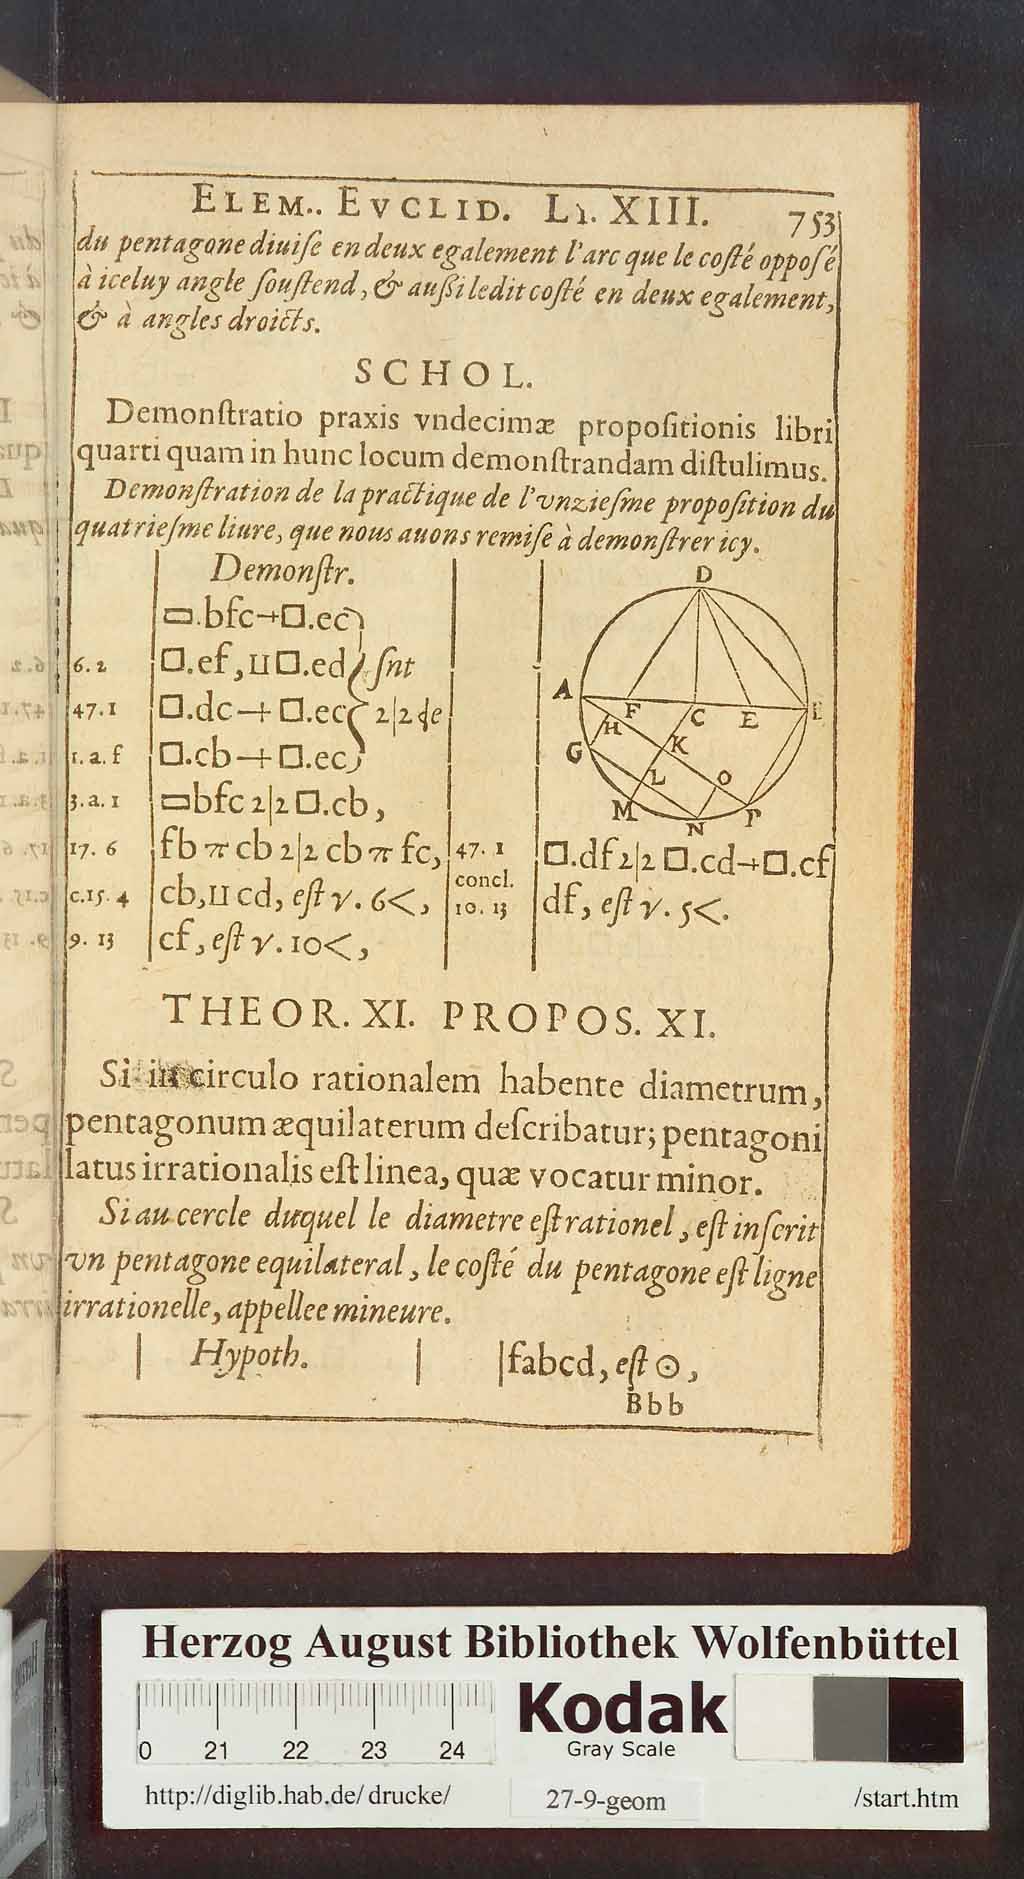 ELEM.. EVCLID. Li. XIII. 753
du pentagone diuiſe en deux egalement l'arc que le coſté oppoſé
à iceluy angle ſouſtend, & auſsi ledit coſté en deux egalement,
& à angles droicts.
SCHOL.
Demonſtratio praxis vndecimæ propoſitionis libri
quarti quam in hunc locum demonſtrandam diſtulimus.
Demonſtration de la practique de l'vnzieſme propoſition du
quatrieſme liure, que nous auons remiſe à demonſtrer icy.
Demonſtr.
▭.bfc+□.ec
6.2 □.ef, ⊔□.ed ſnt
47.1 □.dc+□.ec 2|2 de
1.a.f □.cb+□.ec
3.a.1 ▭bfc 2|2 □.cb,
17.6 fb π cb 2|2 cb π fc,
c.15.4 cb, ⊔ cd, eſt γ. 6<,
9.13 cf, eſt γ. 10<,
D
A F C E B
H
G K
L O
M N P
47.1 □.df 2|2 □.cd+□.cf
concl.
10.13 df, eſt γ. 5<.
THEOR. XI. PROPOS. XI.
Si in circulo rationalem habente diametrum,
pentagonum æquilaterum deſcribatur; pentagoni
latus irrationalis eſt linea, quæ vocatur minor.
Si au cercle duquel le diametre eſt rationel, eſt inſcrit
vn pentagone equilateral, le coſté du pentagone eſt ligne
irrationelle, appellee mineure.
Hypoth. fabcd, eſt ⊙,
Bbb
Herzog August Bibliothek Wolfenbüttel
0 21 22 23 24
Kodak
Gray Scale
http://diglib.hab.de/drucke/ 27-9-geom /start.htm